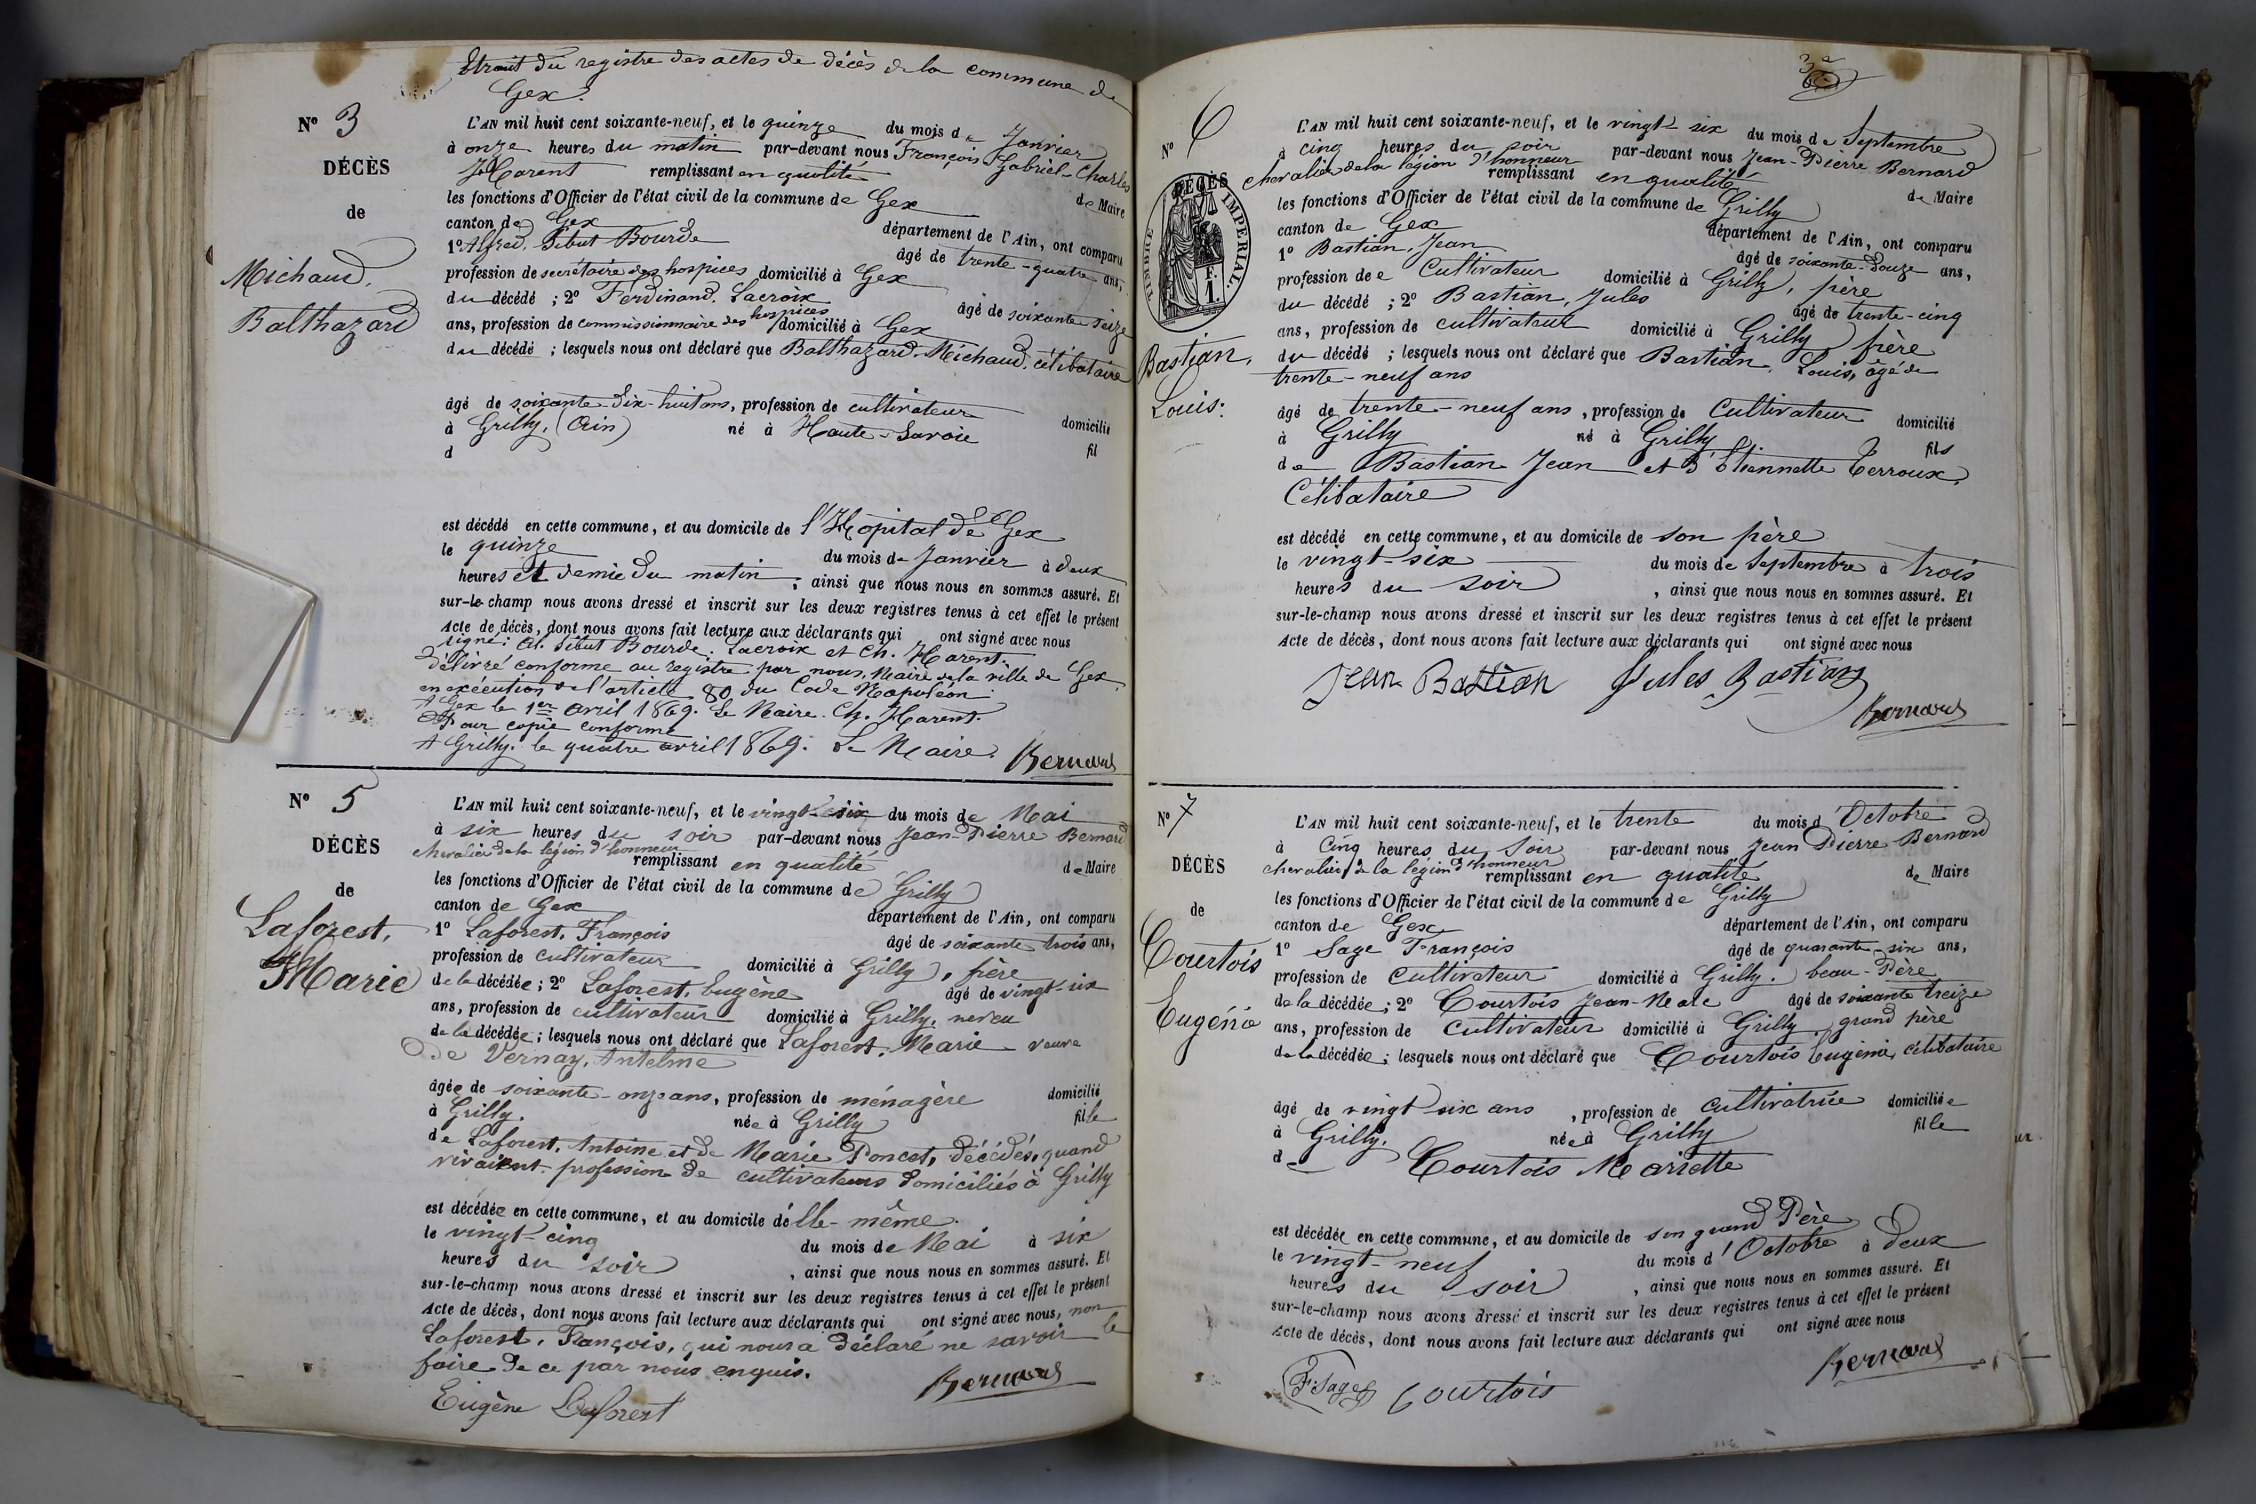 Extrait du registre des actes de décès de la commune de
Gex.
N° 3
DÉCÈS
de
Michaud,
Balthazard
L'AN mil huit cent soixante-neuf, et le quinze du mois de Janvier
à onze heures du matin par-devant nous François Gabriel-Charles
Harent remplissant en qualité de Maire
les fonctions d'Officier de l'état civil de la commune de Gex
canton de Gex département de l'Ain, ont comparu
1° Alfred Sibut Bourde âgé de trente-quatre ans,
profession de secrétaire des hospices domicilié à Gex
du décédé ; 2° Ferdinand Lacroix âgé de soixante seize
ans, profession de commissionnaire des hospices domicilié à Gex
du décédé ; lesquels nous ont déclaré que Balthazard Michaud, célibataire
âgé de soixante-dix-huit ans, profession de cultivateur domicilié
à Grilly, (Ain) né à Haute-Savoie
d fil
est décédé en cette commune, et au domicile de l'Hôpital de Gex
le quinze du mois de Janvier à deux
heures et demie du matin, ainsi que nous nous en sommes assuré. Et
sur-le-champ nous avons dressé et inscrit sur les deux registres tenus à cet effet le présent
Acte de décès, dont nous avons fait lecture aux déclarants qui ont signé avec nous
signé : Al. Sibut Bourde, Lacroix et Ch. Harent.
Délivré conforme au registre par nous, Maire de la ville de Gex,
en exécution de l'article 80 du Code Napoléon.
A Gex le 1er Avril 1869. Le Maire. Ch. Harent.
Pour copie conforme
A Grilly, le quatre avril 1869. Le Maire. Bernard
N° 5
DÉCÈS
de
Laforest,
Marie
L'AN mil huit cent soixante-neuf, et le vingt-six du mois de Mai
à six heures du soir par-devant nous Jean-Pierre Bernard
chevalier de la légion d'honneur remplissant en qualité de Maire
les fonctions d'Officier de l'état civil de la commune de Grilly
canton de Gex département de l'Ain, ont comparu
1° Laforest, François âgé de soixante trois ans,
profession de cultivateur domicilié à Grilly, frère
de la décédée ; 2° Laforest, Eugène âgé de vingt-six
ans, profession de cultivateur domicilié à Grilly, neveu
de la décédée ; lesquels nous ont déclaré que Laforest, Marie veuve
de Vernay, Antelme
âgée de soixante-onze ans, profession de ménagère domicilié
à Grilly. née à Grilly fille
de Laforest, Antoine et de Marie Poncet, décédés, quand
vivaient profession de cultivateurs domiciliés à Grilly
est décédée en cette commune, et au domicile d'elle-même.
le vingt-cinq du mois de Mai à six
heures du soir, ainsi que nous nous en sommes assuré. Et
sur-le-champ nous avons dressé et inscrit sur les deux registres tenus à cet effet le présent
Acte de décès, dont nous avons fait lecture aux déclarants qui ont signé avec nous, non
Laforest, François, qui nous a déclaré ne savoir le
faire de ce par nous enquis.
Bernard
Eugène Laforest
3e
N° 6
DÉCÈS
TIMBRE IMPÉRIAL.
1 F.
Bastian,
Louis.
L'AN mil huit cent soixante-neuf, et le vingt-six du mois de Septembre
à cinq heures du soir par-devant nous Jean-Pierre Bernard
chevalier de la légion d'honneur remplissant en qualité de Maire
les fonctions d'Officier de l'état civil de la commune de Grilly
canton de Gex département de l'Ain, ont comparu
1° Bastian, Jean âgé de soixante-douze ans,
profession de Cultivateur domicilié à Grilly, père
du décédé ; 2° Bastian, Jules âgé de trente-cinq
ans, profession de cultivateur domicilié à Grilly frère
du décédé ; lesquels nous ont déclaré que Bastian, Louis, âgé de
trente-neuf ans
âgé de trente-neuf ans, profession de Cultivateur domicilié
à Grilly né à Grilly fils
de Bastian Jean et d'Etiennette Terroux,
Célibataire
est décédé en cette commune, et au domicile de son père
le vingt-six du mois de Septembre à trois
heures du soir, ainsi que nous nous en sommes assuré. Et
sur-le-champ nous avons dressé et inscrit sur les deux registres tenus à cet effet le présent
Acte de décès, dont nous avons fait lecture aux déclarants qui ont signé avec nous
Jean Bastian Jules Bastian
Bernard
N° 7
DÉCÈS
de
Courtois
Eugénie
L'AN mil huit cent soixante-neuf, et le trente du mois d'Octobre
à Cinq heures du Soir par-devant nous Jean Pierre Bernard
chevalier de la légion d'honneur remplissant en qualité de Maire
les fonctions d'Officier de l'état civil de la commune de Grilly
canton de Gex département de l'Ain, ont comparu
1° Sage François âgé de quarante-six ans,
profession de Cultivateur domicilié à Grilly. beau-Père
de la décédée ; 2° Courtois Jean-Marc âgé de soixante treize
ans, profession de Cultivateur domicilié à Grilly grand père
de la décédée ; lesquels nous ont déclaré que Courtois Eugénie, célibataire
âgé de vingt six ans, profession de Cultivatrice domiciliée
à Grilly. née à Grilly fille
de Courtois Mariette
est décédée en cette commune, et au domicile de son grand Père
le vingt-neuf du mois d'Octobre à deux
heures du soir, ainsi que nous nous en sommes assuré. Et
sur-le-champ nous avons dressé et inscrit sur les deux registres tenus à cet effet le présent
Acte de décès, dont nous avons fait lecture aux déclarants qui ont signé avec nous
Bernard
F. Sage Courtois